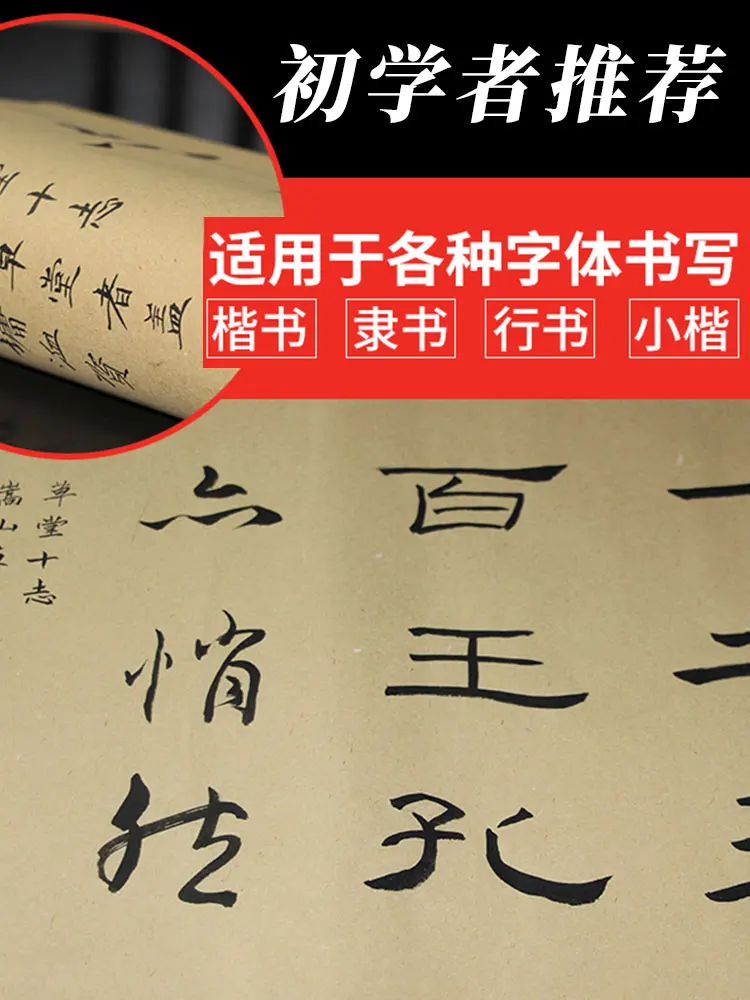 初学者推荐
适用于各种字体书写
楷书 隶书 行书 小楷
十志
堂者盖
百王孔
悄然
草堂十志
嵩山